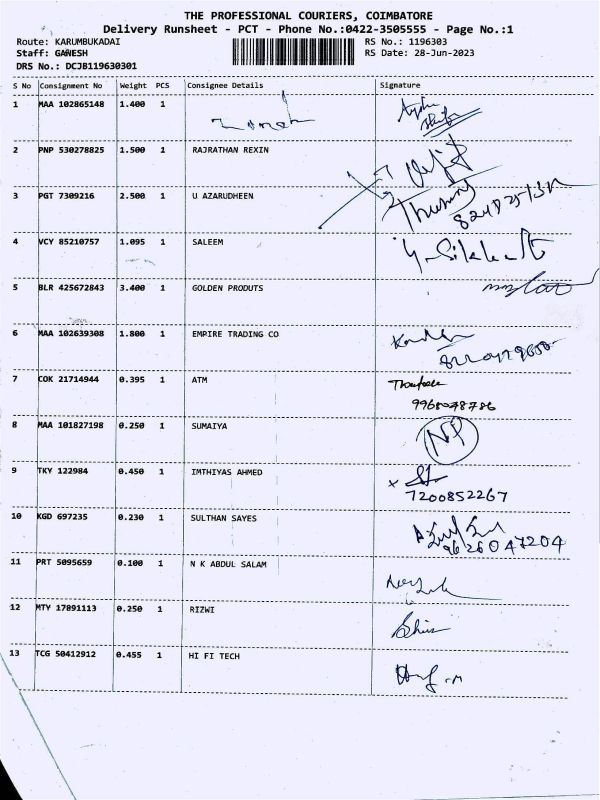 THE PROFESSIONAL COURIERS, COIMBATORE
Delivery Runsheet - PCT - Phone No.:0422-3505555 - Page No.:1
Route: KARUMBUKADAI RS No.: 1196303
Staff: GANESH RS Date: 28-Jun-2023
DRS No.: DCJB119630301
S No Consignment No Weight PCS Consignee Details Signature
1 MAA 102865148 1.400 1
2 PNP 530278825 1.500 1 RAJRATHAN REXIN
3 PGT 7309216 2.500 1 U AZARUDHEEN
4 VCY 85210757 1.095 1 SALEEM
5 BLR 425672843 3.400 1 GOLDEN PRODUTS
6 MAA 102639308 1.800 1 EMPIRE TRADING CO
7 COK 21714944 0.395 1 ATM
9968078786
8 MAA 101827198 0.250 1 SUMAIYA
9 TKY 122984 0.450 1 IMTHIYAS AHMED
7200852267
10 KGD 697235 0.230 1 SULTHAN SAYES
9626047204
11 PRT 5095659 0.100 1 N K ABDUL SALAM
12 MTY 17891113 0.250 1 RIZWI
13 TCG 50412912 0.455 1 HI FI TECH